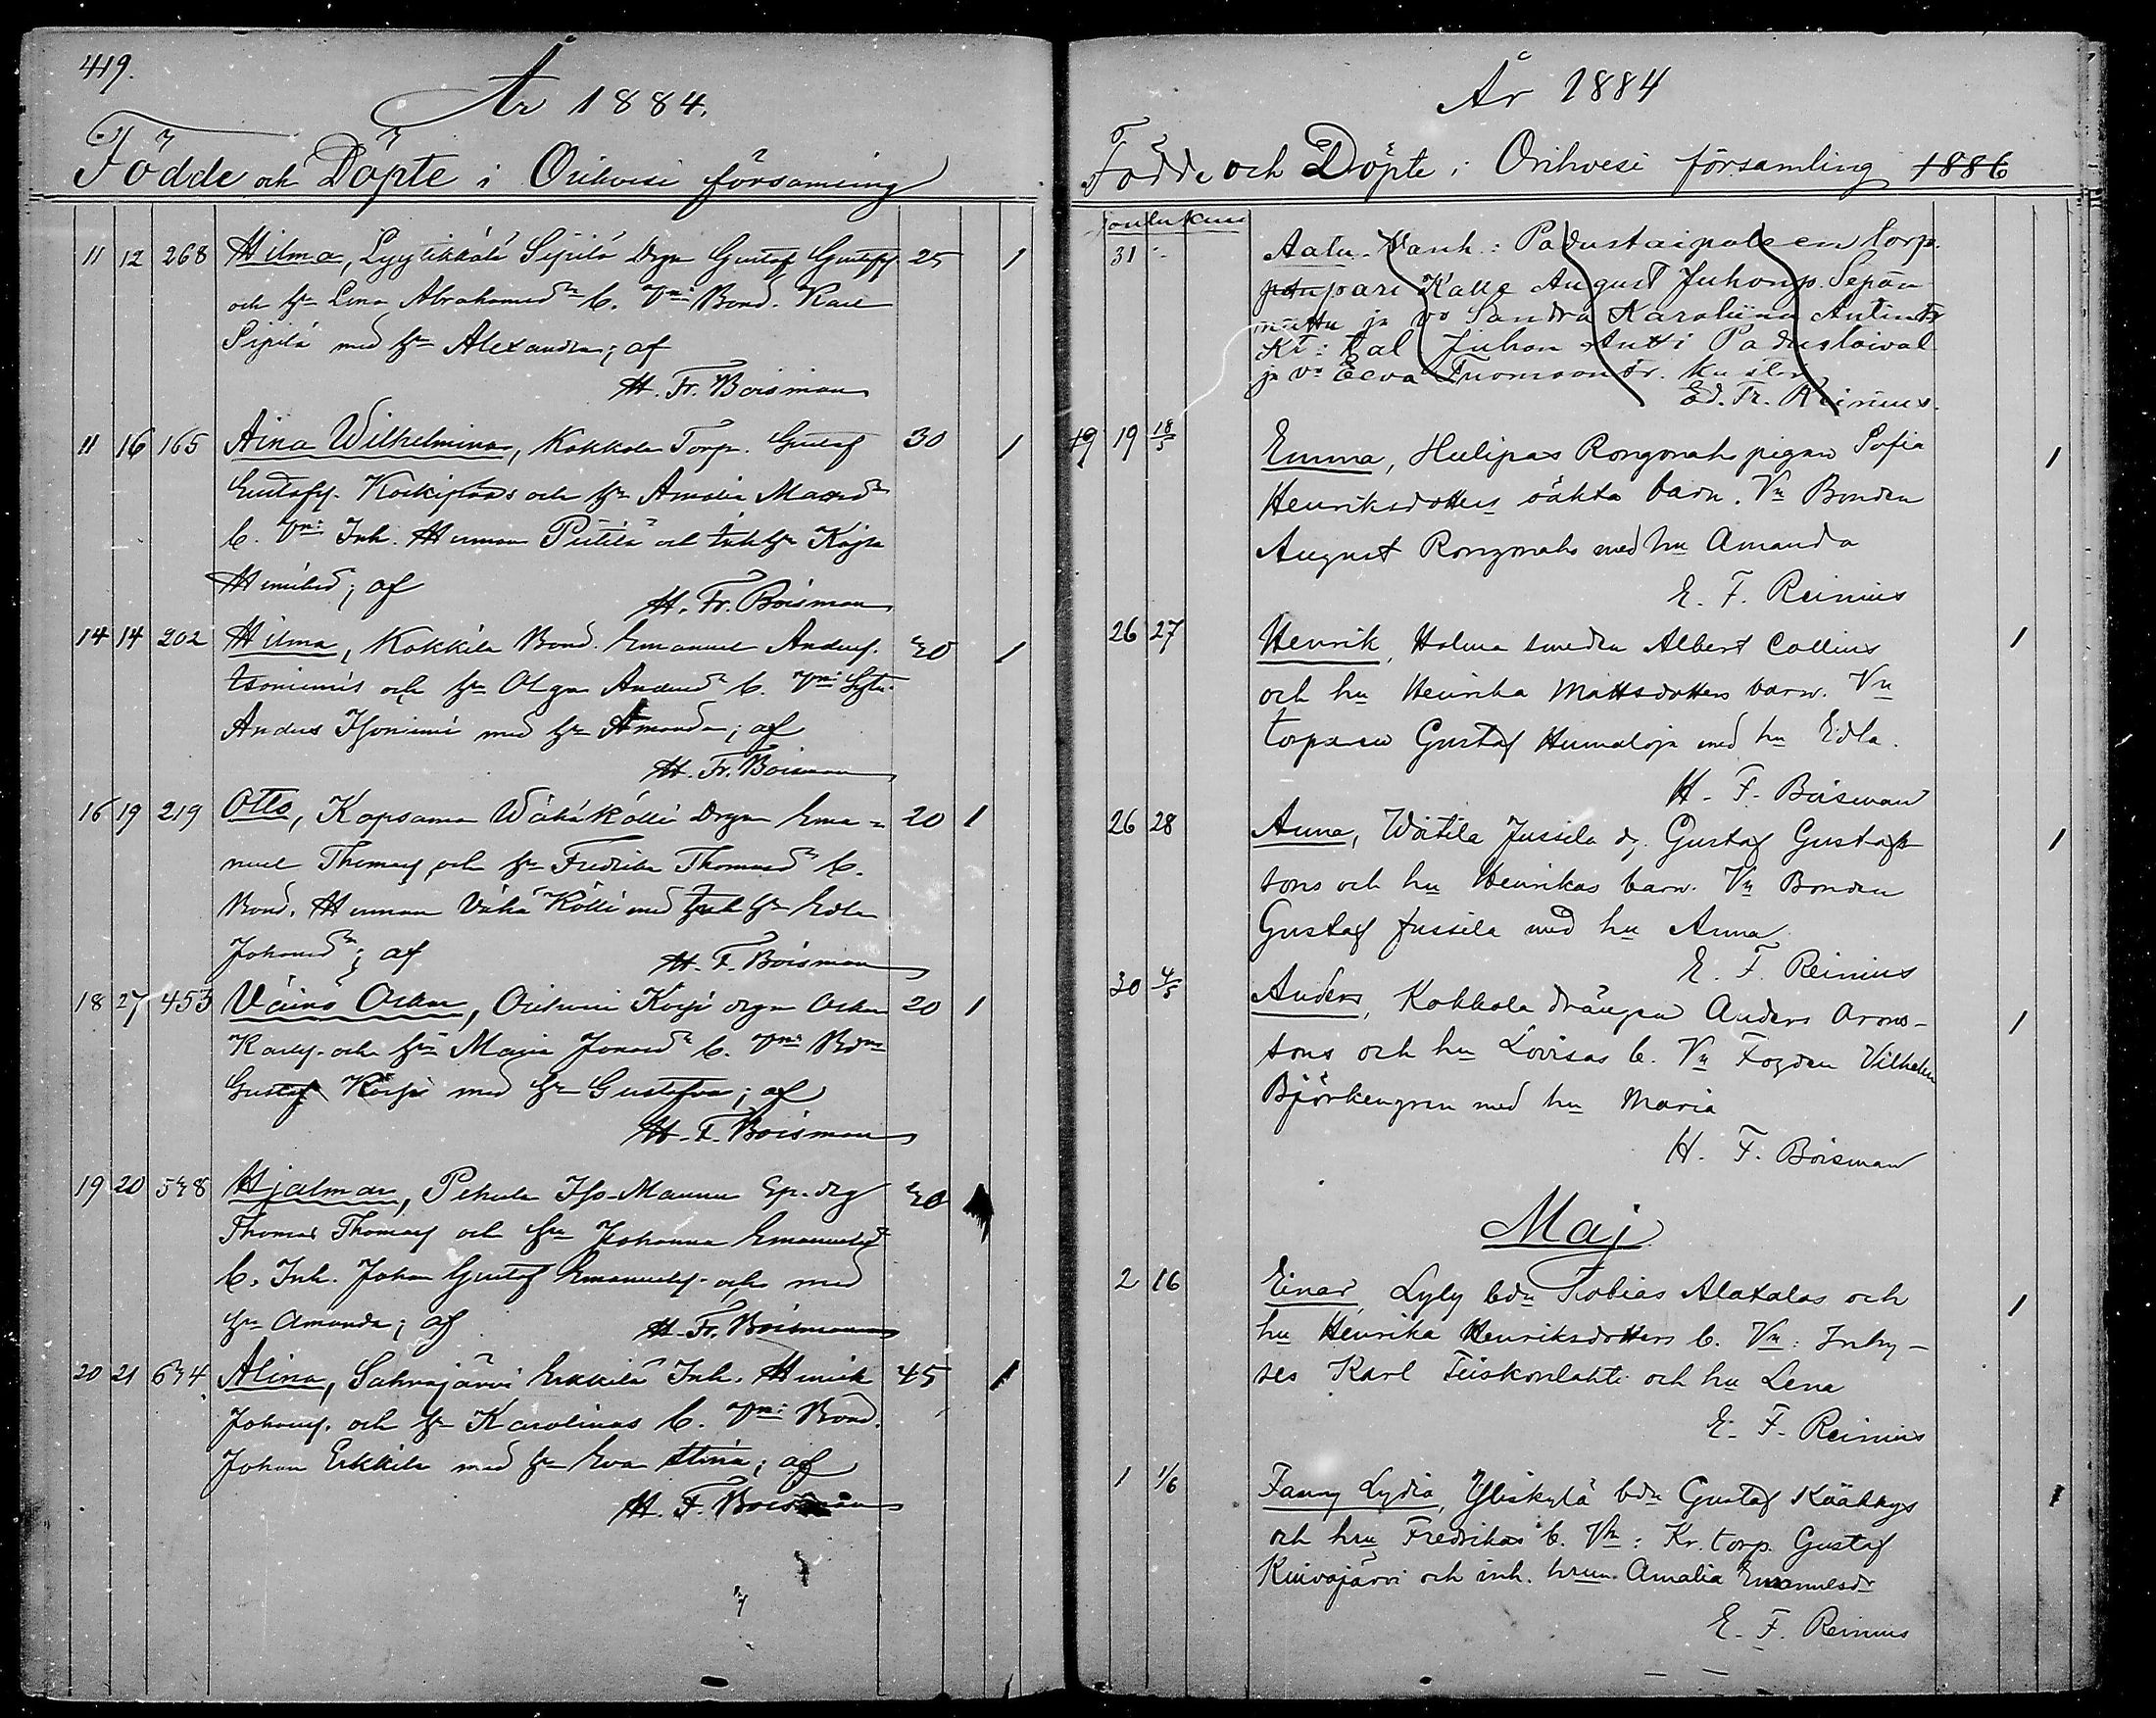 419.
År 1884.
Födde och Döpte i Orihvesi församling
11 12 268 Hilma, Lyytikkälä Sipilä Drgn Gustaf Gustafs. 25 1
och hu Lena Abrahamsd b. Vn: Bond. Karl
Sipilä med hu Alexandra; af
H. Fr. Boisman
11 16 165 Aina Wilhelmina, Kokkola Torp. Gustaf 30 1
Gustafs. och hu Amalia
b. Vn: Inh. Herman Pietilä och Inh hu Kajsa
; af
H. Fr. Boisman
14 14 202 Hilma, Kokkila Bond. Emanuel Anders. 1
och hu Olga b. Vn:
Anders Isoniemi med hu Amanda; af
H. Fr. Boisman
16 19 219 Otto, Kopsamo Wähä Kölli Drgn Ema- 20 1
nuel Thomas och hu Fredrika Thomasd b.
Bond. Herman Vähä Kölli med Inh hu Edla
Johansd; af
H. F. Boisman
18 27 453 Väinö Oskar, Orihvesi drgn Oskar 20 1
Karls. och hu Maria b. Vn:
Gustaf med hu Gustafva; af
H. F. Boisman
19 20 Hjalmar, Pehula Iso-Maunu drg
Thomas Thomas och hu Johanna Emanuelsd
b. Inh. Johan Gustaf Emanuels. och med
hu Amanda; af
H. Fr. Boisman
20 21 Alina, Sahrajärvi Erkkilä Inh. Henrik 45 1
Johans. och hu Karolinas b. Vn: Bond.
Johan Erkkilä med hu Eva Stina; af
H. F. Boisman
År 1884
Födde och Döpte i Orihvesi församling 1886
Joulukuu
31 Aatu : Padustaipaleen torp.
pari Kalle August Juhonp. Sepän-
mattu ja vo Sandra Karoliina Antintr
Kt: tal Juhon Antti Padustaival
ja vo Eeva Tuomaantr.
Ed. Fr. Reinius.
19 19 18/5 Emma, Hulipas Rongonaho pigan Sofia 1
Henriksdotters oäkta barn. Vn Bonden
August Rongonaho med hu Amanda
E. F. Reinius
26 27 Henrik, Holma smeden Albert Collins 1
och hu Henrika Mattsdotters barn. Vn
torparen Gustaf Humaloja med hu Edla.
H. F. Boisman
26 28 Anna, Wätilä Jussila dg. Gustaf Gustafs- 1
sons och hu Henrikas barn. Vn Bonden
Gustaf Jussila med hu Anna
E. F. Reinius
30 4/5 Anders, Kokkola drängen Anders Arons- 1
sons och hu Lovisas b. Vn Fogden Vilhelm
Björkengren med hu Maria
H. F. Boisman
Maj
2 16 Einar, Lyly bdn Tobias Alatalos och 1
hu Henrika Henriksdotters b. Vn: Inhy-
ses Karl Teiskonlahti och hu Lena
E. F. Reinius
1 1/6 Fanny Lydia, Yliskylä bdn Gustaf Käähkys 1
och hru Fredrikas b. Vn: Kr. torp. Gustaf
Kuivajärvi och inh. hrun. Amalia Emanuelsdr
E. F. Reinius